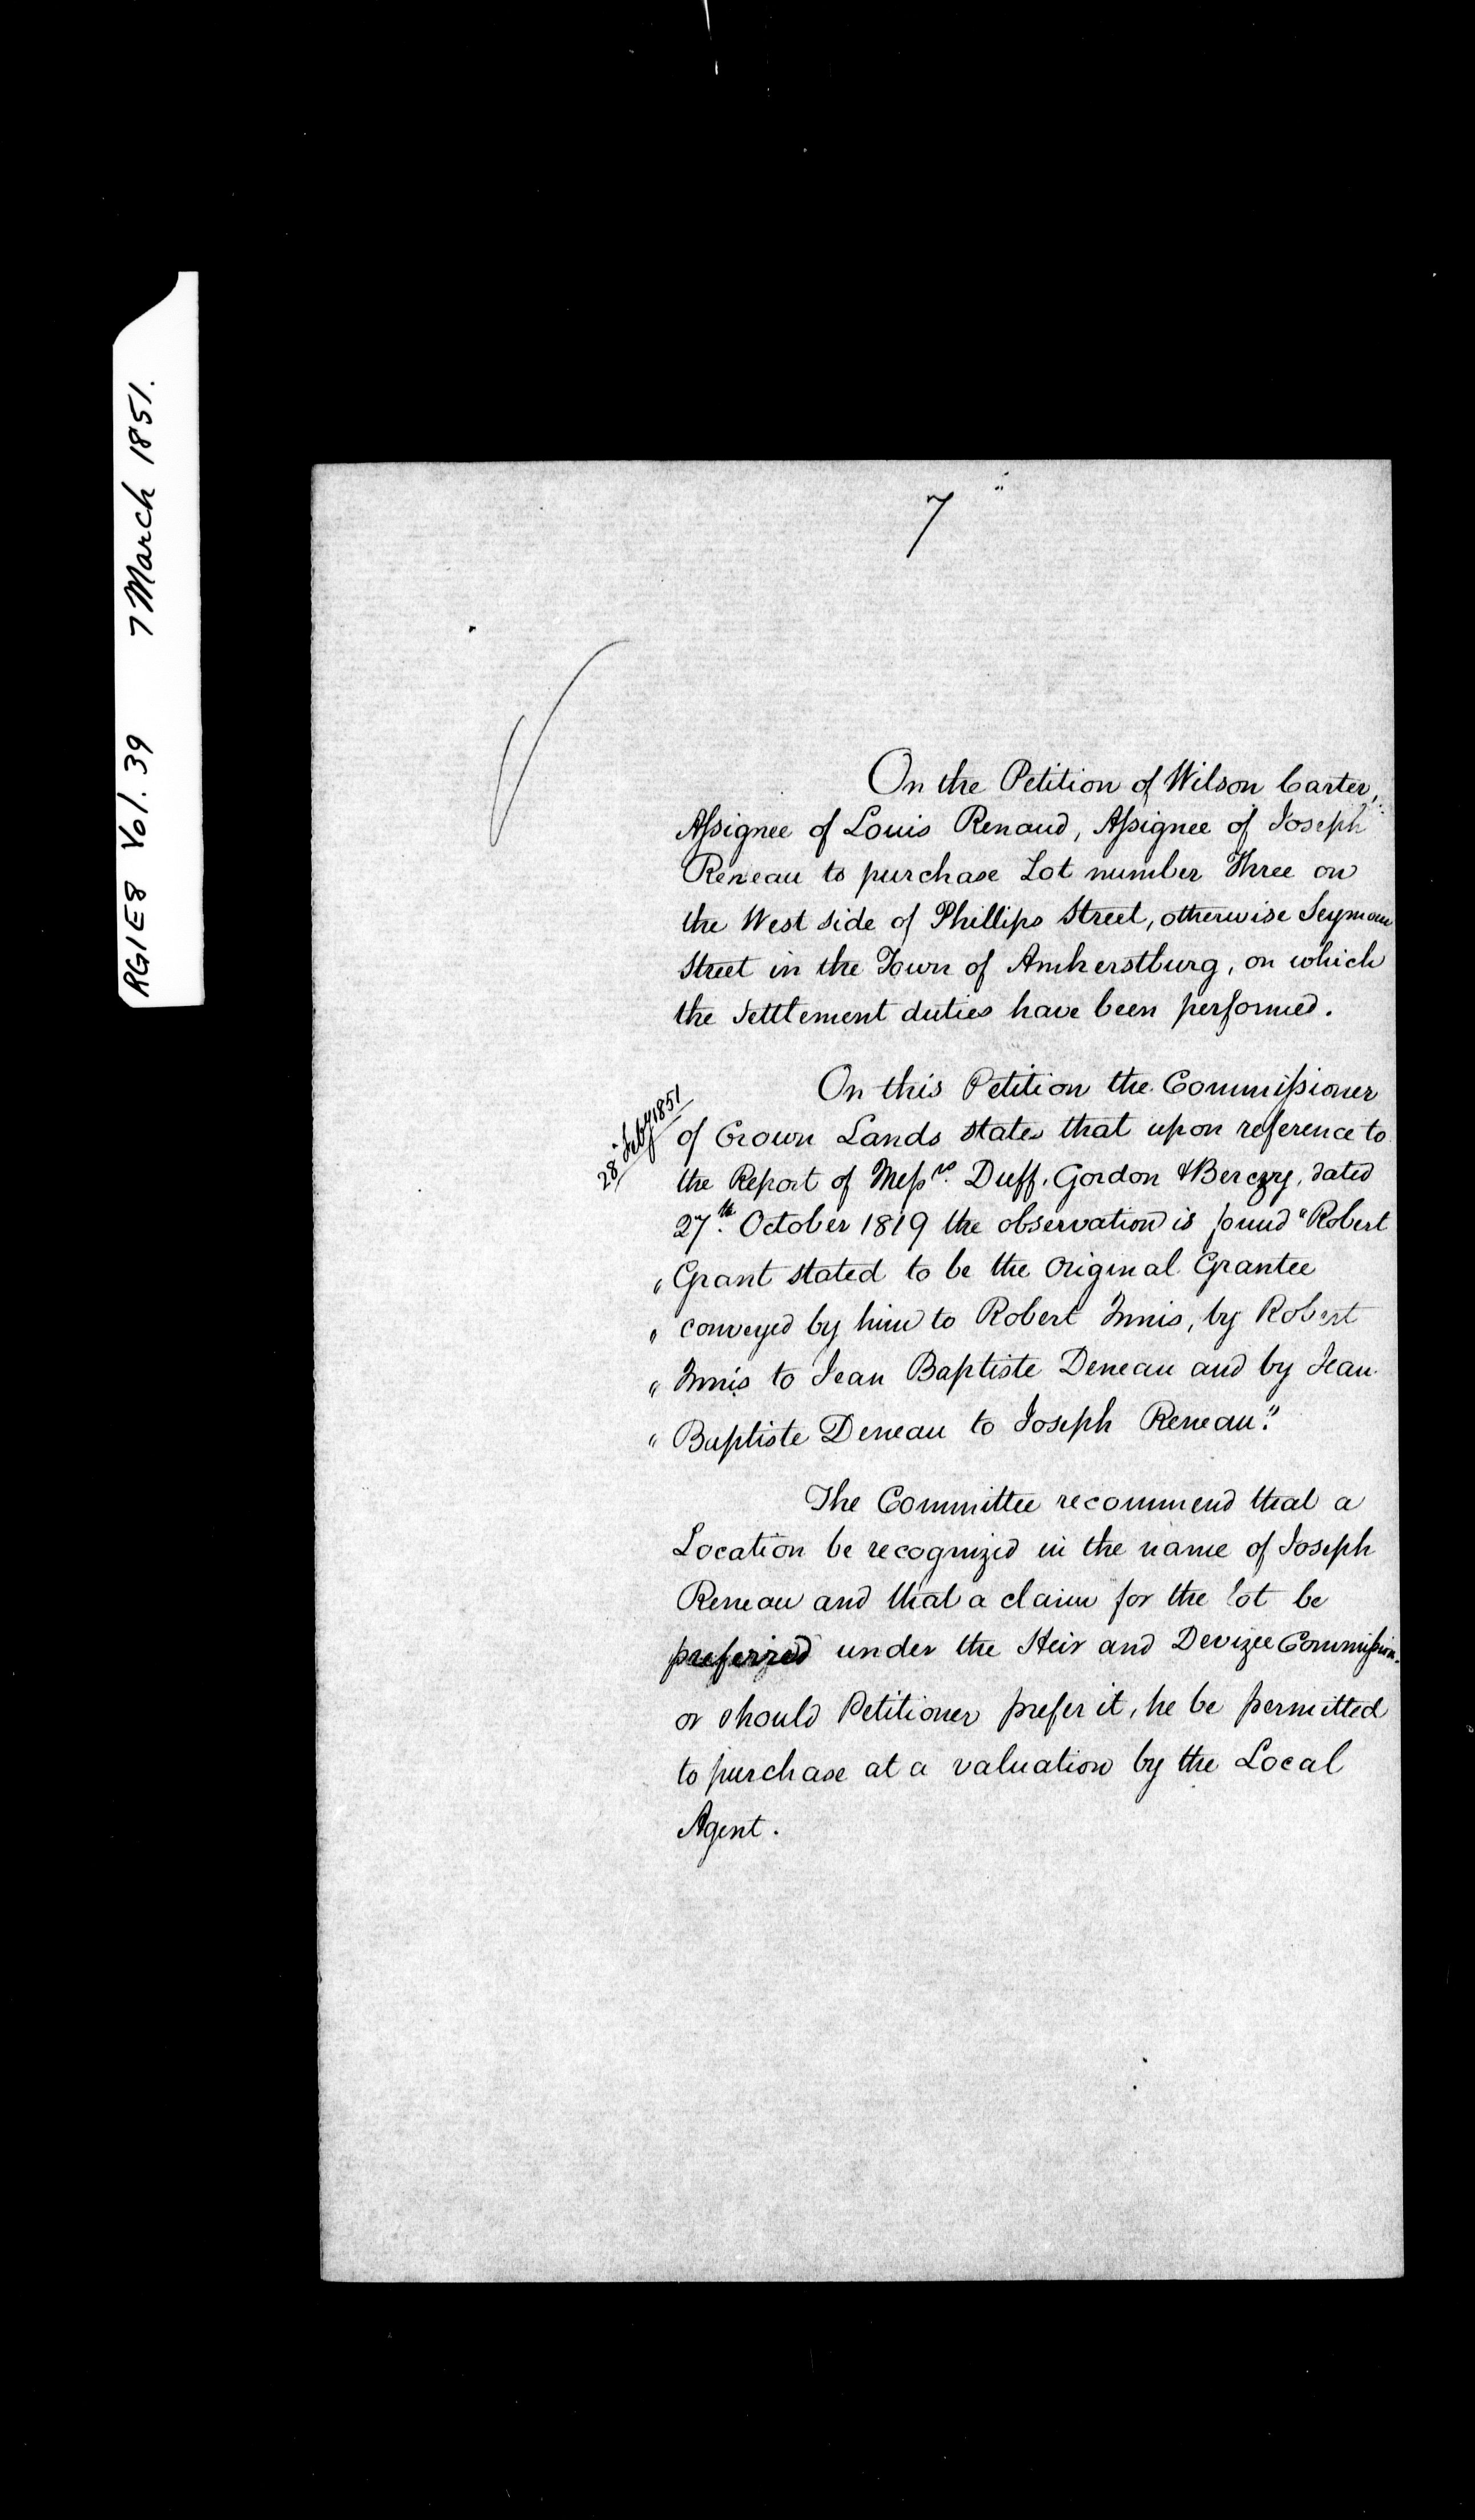 RG1E8 Vol. 39 7 March 1851.
7
On the Petition of Wilson Carter,
Assignee of Louis Renaud, Assignee of Joseph
Reneau to purchase Lot number Three on
the West side of Phillips Street, otherwise Seymour
Street in the Town of Amherstburg, on which
the Settlement duties have been performed.
On this Petition the Commissioner
28 Feby 1851
of Crown Lands states that upon reference to
the Report of Messrs. Duff, Gordon & Berczy, dated
27th. October 1819 the observation is found "Robert
" Grant stated to be the Original Grantee
" conveyed by him to Robert Innis, by Robert
" Innis to Jean Baptiste Deneau and by Jean
" Baptiste Deneau to Joseph Reneau."
The Committee recommend that a
Location be recognized in the name of Joseph
Reneau and that a claim for the lot be
preferred under the Heir and Devizee Commission.
or should Petitioner prefer it, he be permitted
to purchase at a valuation by the Local
Agent.